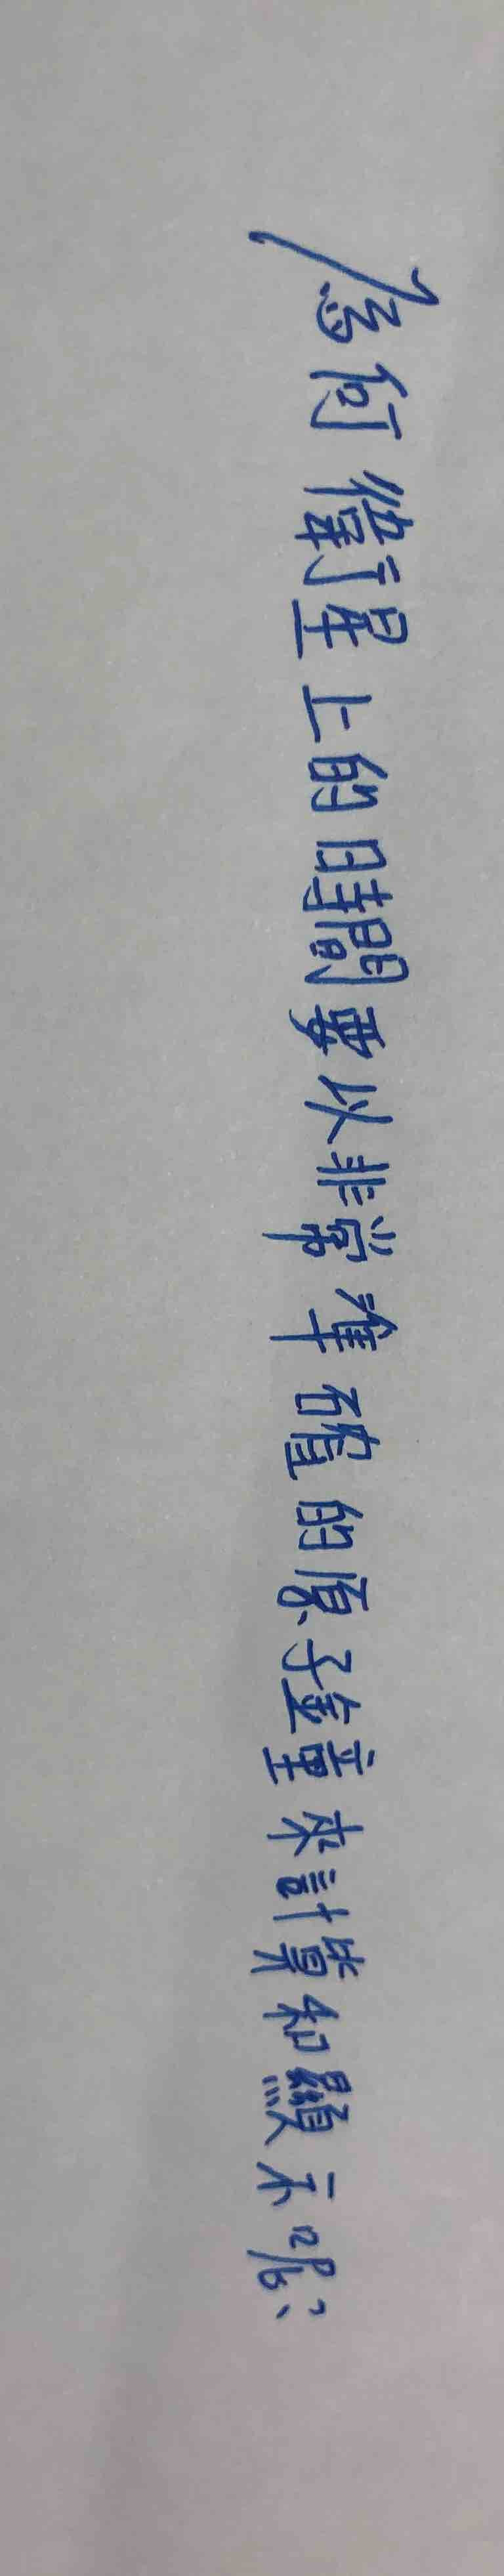 為何衛星上的時間要以非常準確的原子鐘來計算和顯示呢?